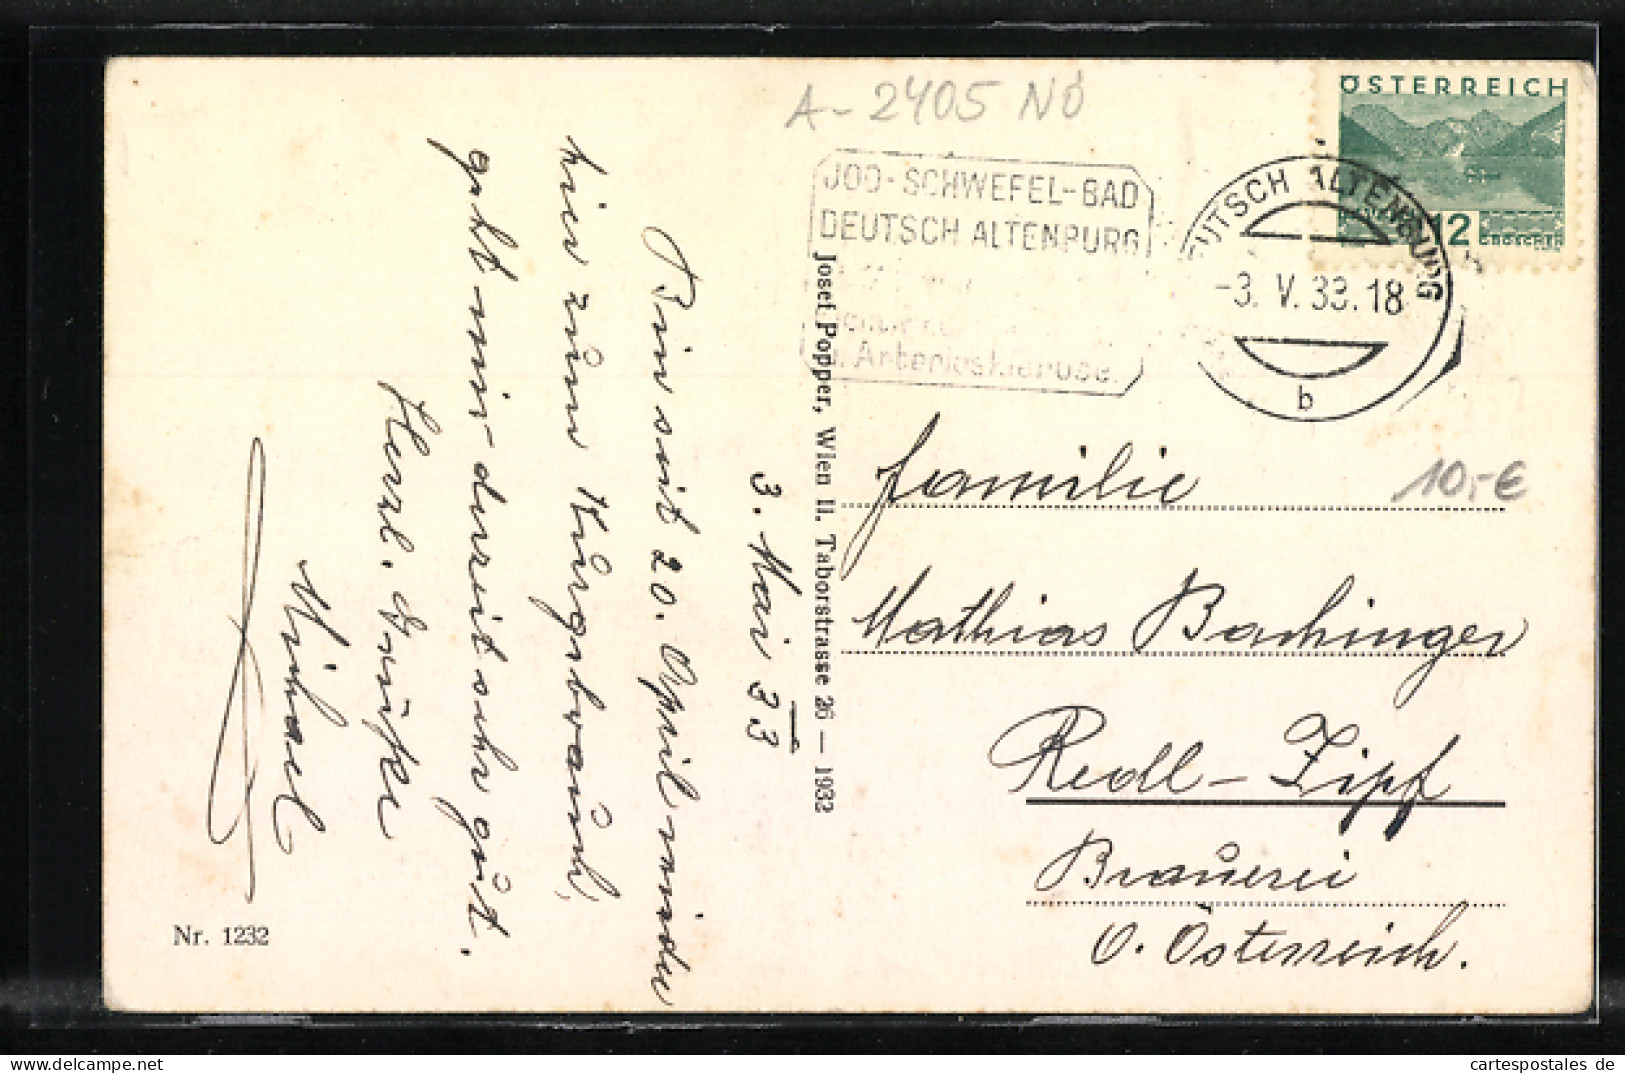 A-2405 NÖ
ÖSTERREICH
12
GROSCHEN
JOD-SCHWEFEL-BAD
DEUTSCH ALTENBURG
u. Arteriosklerose.
DEUTSCH ALTENBURG
-3. V. 33. 18
b
10,-€
3. Mai 33
Bin seit 20. April wieder
hier zum Kurgebrauch,
geht mir derzeit sehr gut.
Herzl. Grüße
Michael
Nr. 1232
Josef Popper, Wien II. Taborstrasse 26 — 1932
Familie
Mathias Bachinger
Redl-Zipf
Brauerei
O. Österreich.
cartespostales de
delcampe.net